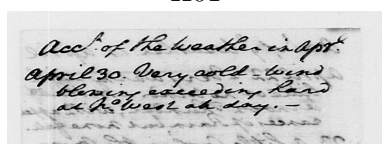 Acct. of the Weather in Apr.
April 30. Very cold - wind
blowing exceeding hard
at No. West all day. —